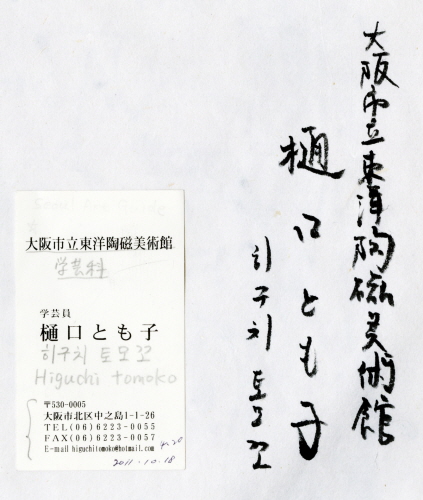 大阪市立東洋陶磁美術館
樋口とも子
히구치 토모꼬
大阪市立東洋陶磁美術館
学芸科
学芸員
樋口とも子
히구치 토모꼬
Higuchi tomoko
〒530-0005
大阪市北区中之島1-1-26
TEL(06)6223-0055
FAX(06)6223-0057
E-mail higuchitomoko@hotmail.com
2011.10.18